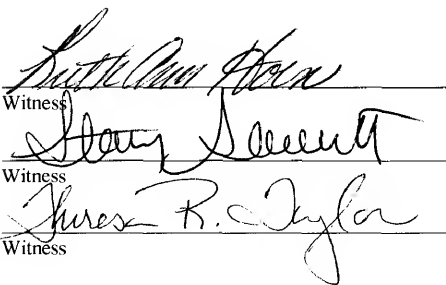 Ruth Ann Horn
Witness
Stacy
Witness
Theresa R. Taylor
Witness